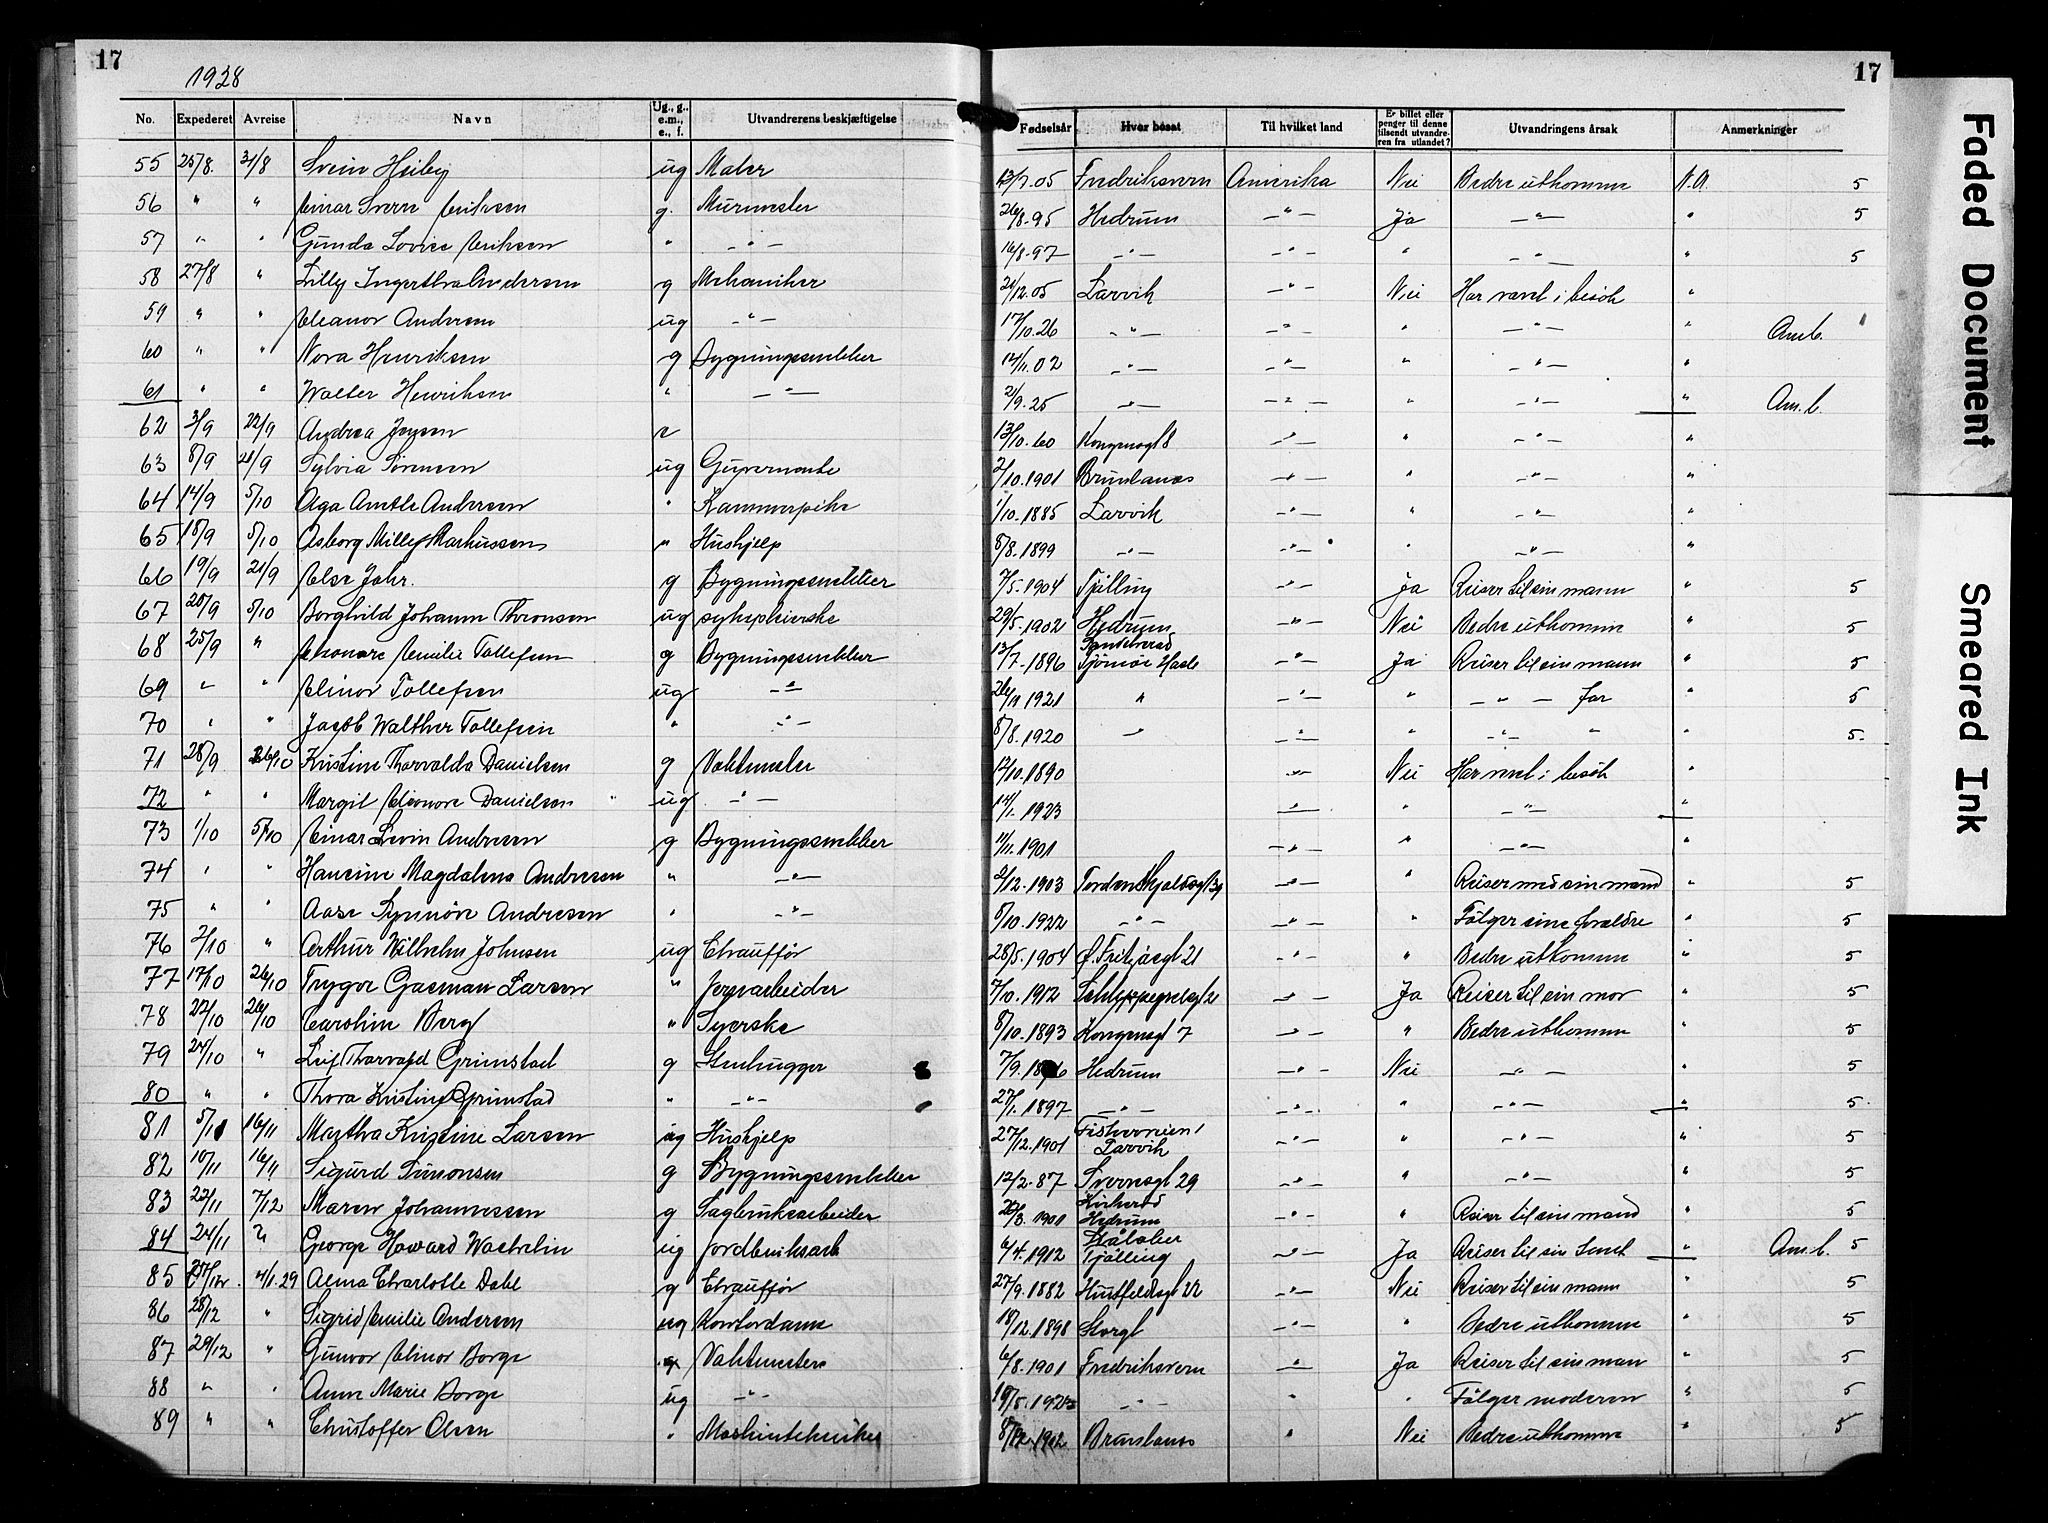 17
1928
17
No. Expederet Avreise Navn Ug., g., e.m., e., f. Utvandrerens beskjæftigelse Fødselsår Hvor bosat Til hvilket land Er billet eller penger til denne tilsendt utvandreren fra utlandet? Utvandringens årsak Anmerkninger
55 25/8. 31/8 Svein Heiby ug Maler 13/7.05 Fredriksvern Amerika Nei Bedre utkomme N.A. 5
56 " " Einar Sverre Eriksen g. Murmester 26/8.95 Hedrum —"— Ja —"— " 5
57 " " Gunda Lovise Eriksen " —"— 16/8.97 —"— —"— " —"— " 5
58 27/8 " Lilly Ingertha Andersen g Mekaniker 21/12.05 Larvik —"— Nei Har vært i besøk "
59 " " Eleanor Andersen ug —"— 17/10.26 —"— —"— " —"— " Am b.
60 " " Nora Henriksen g Bygningssnekker 14/11.02 —"— —"— " —"— "
61 " " Walter Henriksen " —"— 2/9.25 —"— —"— " —"— " Am. b.
62 3/9 22/9 Andrea Jensen e 13/10.60 Kongensgt 8 —"— " —"— "
63 8/9 21/9 Sylvia Sørensen ug Guvernante 2/10.1901 Brunlanes —"— " —"— "
64 14/9 5/10 Olga Amalie Andersen " Kammerpike 1/10.1885 Larvik —"— " —"— "
65 18/9 5/10 Asborg Milly Markussen " Hushjelp 8/8.1899 —"— —"— " —"— "
66 19/9 21/9 Else Jahr. g Bygningssnekker 7/5.1904 Tjølling —"— Ja Reiser til sin mann " 5
67 20/9 5/10 Borghild Johanne Thronsen ug sykepleierske 29/5.1902 Hedrum —"— Nei Bedre utkomme " 5
68 25/9 " Eleonore Emilie Tollefsen g Bygningssnekker 13/7.1896 Tjømø Hasle —"— Ja Reiser til sin mann " 5
69 " " Elinor Tollefsen ug —"— 26/11 1921 " —"— " —"— far " 5
70 " " Jacob Walther Tollefsen " —"— 8/8.1920 " —"— " —"— " " 5.
71 28/9 26/10 Kristine Thorvalda Danielsen g Vaktmester 17/10.1890 —"— Nei Har vært i besøk "
72 " " Margit Eleonore Danielsen ug —"— 14/1.1923 —"— " —"— "
73 1/10 5/10 Einar Levin Andresen g Bygningssnekker 11/11.1901 —"— " —"— "
74 " " Hansine Magdalena Andresen " —"— 2/12.1903 —"— " Reiser med sin mand " 5
75 " " Aase Synnøve Andresen " —"— 5/10.1922 —"— —"— " Følger sine foreldre " 5
76 2/10 " Arthur Wilhelm Johnsen ug Chauffør 28/5.1904 Ø. Fritzøegt 21 —"— " Bedre utkomme " 5
77 17/10 26/10 Trygve Gasman Larsen " Jernarbeider 7/10.1912 Schleppegrelsgt 2 —"— Ja Reiser til sin mor " 5
78 22/10 26/10 Caroline Berg " Syerske 8/10.1893 Kongensgt 7 —"— " Bedre utkomme " 5
79 24/10 " Leif Thorvald Grimstad g Stenhugger 7/9. Hedrum —"— Nei —"— " 5
80 " " Thora Kristine Grimstad " —"— 27/1.1897 —"— —"— " —"— " 5
81 5/11 16/11 Martha Kristine Larsen ug Hushjelp 27/12.1901 Larvik —"— " —"— " 5
82 10/11 16/11 Sigurd Simonsen g Bygningssnekker 12/2.87 Sverresgt 29 —"— " —"— " 5
83 22/11 7/12 Maren Johannessen g Sagbruksarbeider 22/3.1901 Kirkerød Hedrum —"— " Reiser til sin mand " 5
84 24/11 " George Howard Wachelin ug Jordbruksarb 6/4.1912 Ståtaker Tjølling —"— Ja Reiser til sin tante " Am. b. 5
85 27/12. 4/1.29 Alma Charlotte Dahl g Chauffør 27/9.1882 Huitfeldsgt 22 —"— Nei Reiser til sin mann " 5
86 28/12 " Sigrid Emilie Andersen ug Kontordame 18/12.1898 Storgt —"— " Bedre utkomme " 5
87 29/12 " Gunvor Elinor Borge g Vaktmester 6/8.1901 Fredriksvern —"— Ja Reiser til sin man " 5
88 " " Anne Marie Borge ug —"— 10/5.1923 —"— " " Følger moderen " 5
89 " " Christoffer Olsen " Maskintekniker 8/12.1902 Brunlanes " Nei Bedre utkomme " 5
Faded Document
Smeared Ink